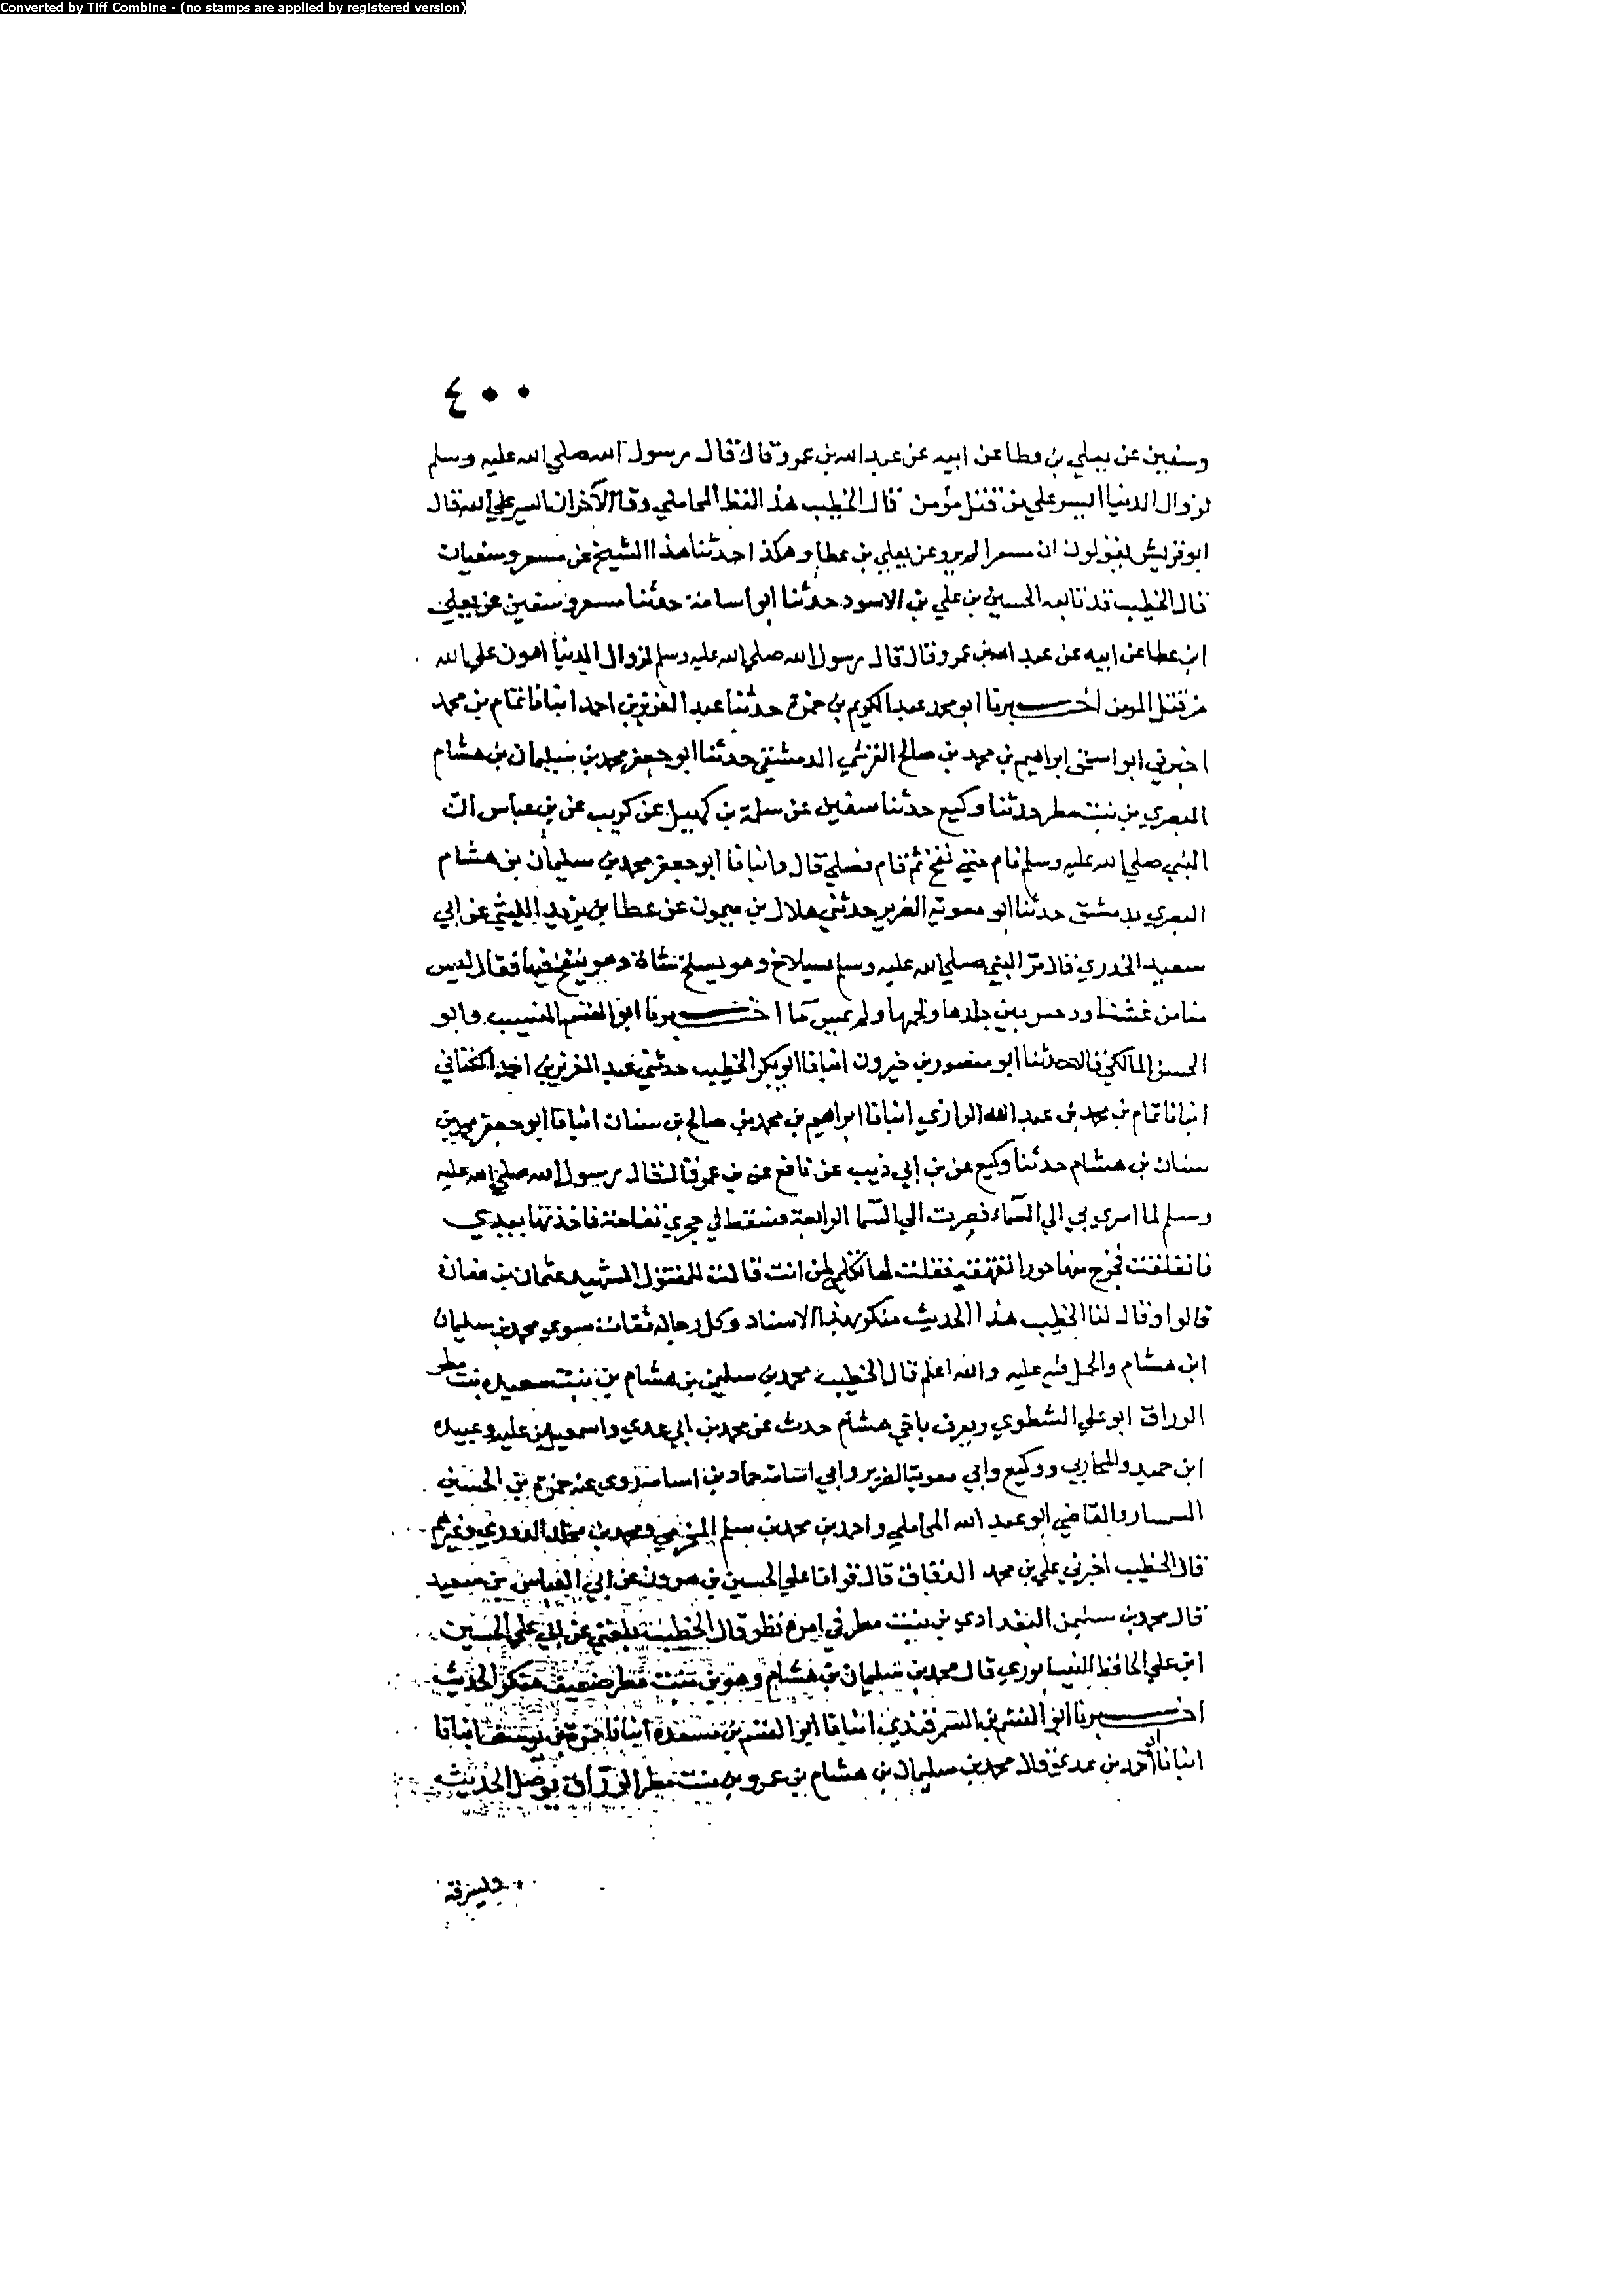 Converted by Tiff Combine - (no stamps are applied by registered version)
٤٠٠
وسفين عن يعلي بن عطا عن ابيه عن عبد الله بن عمرو قال قال رسول الله صلي الله عليه وسلم
لزوال الدنيا ايسر علي من قتل مؤمن قال الخطيب هذا لفظ المحاملي وقال الآخران ايسر علي الله قال
ابو قريش يقولون ان مسعرا لم يرو عن يعلي بن عطا وهكذا حدثنا هذا الشيخ عن مسعر وسفيان
قال الخطيب قد تابعه الحسين بن علي بن الاسود حدثنا ابو اسامة حدثنا مسعر وسفين عن يعلي
ابن عطا عن ابيه عن عبد الله بن عمرو قال قال رسول الله صلي الله عليه وسلم لزوال الدنيا اهون علي الله
من قتل المومن اخبرنا ابو محمد عبد الكريم بن حمزة حدثنا عبد العزيز بن احمد انبانا تمام بن محمد
اخبرني ابو اسحق ابراهيم بن محمد بن صالح القرشي الدمشقي حدثنا ابو جعفر محمد بن سليمان بن هشام
البصري بن بنت مطر حدثنا وكيع حدثنا سفين عن سلمة بن كهيل عن كريب عن بن عباس ان
النبي صلي الله عليه وسلم نام حتي نفخ ثم قام فصلي قال وانبانا ابو جعفر محمد بن سليمان بن هشام
البصري بدمشق حدثنا ابو معوية الضرير حدثني هلال بن ميمون عن عطا بن يزيد الليثي عن ابي
سعيد الخدري قال مر النبي صلي الله عليه وسلم بسلاخ وهو يسلخ شاة وهو ينفخ فيها فقال ليس
منا من غشنا ودحس بين جلدها ولحمها ولم يمس ما اخبرنا ابو القسم النسيب وابو
الحسن المالكي قالا حدثنا ابو منصور بن خيرون انبانا ابو بكر الخطيب حدثني عبد العزيز بن احمد الكتاني
انبانا تمام بن محمد بن عبد الله الرازي انبانا ابراهيم بن محمد بن صالح بن سنان انبانا ابو جعفر محمد بن
سنان بن هشام حدثنا وكيع عن بن ابي ذيب عن نافع عن بن عمر قال قال رسول الله صلي الله عليه
وسلم لما اسري بي الي السماء فصرت الي السما الرابعة فسقط في حجري تفاحة فاخذتها بيدي
فانفلقت فخرج منها حورا تقهقه فقلت لها تكلمي لمن انت قالت للمقتول الشهيد عثمان بن عفان
قالوا وقال لنا الخطيب هذا الحديث منكر بهذا الاسناد وكل رجاله ثقات سوي محمد بن سليمان
ابن هشام والحمل فيه عليه والله اعلم قال الخطيب محمد بن سليمن بن هشام بن بنت سعيده بنت مطر
الوراق ابو علي الشطوي ويعرف باخي هشام حدث عن محمد بن ابي عدي واسمعيل بن عليه وعبيده
ابن حميد والمحاربي ووكيع وابي معوية الضرير وابي اسامة حماد بن اسامة روي عنه حمزة بن الحسين
السمسار والقاضي ابو عبد الله المحاملي واحمد بن محمد بن سلم المخرمي ومحمد بن مخلد الدوري وغيرهم
قال الخطيب اخبرني علي بن محمد الدقاق قال قرانا علي الحسين بن هرون عن ابي العباس بن سعيد
قال محمد بن سليمن البغدادي بن بنت مطر في امره نظر قال الخطيب بلغني عن ابي علي الحسين
ابن علي الحافظ النيسابوري قال محمد بن سليمان بن هشام وهو بن بنت مطر ضعيف منكر الحديث
اخبرنا ابو القسم بن السمرقندي انبانا ابو القسم بن مسعدة انبانا حمزة بن يوسف انبانا
انبانا احمد بن عدي قال محمد بن سليمان بن هشام بن عمرو بن بنت مطر الوراق يوصل الحديث
ويسرقه